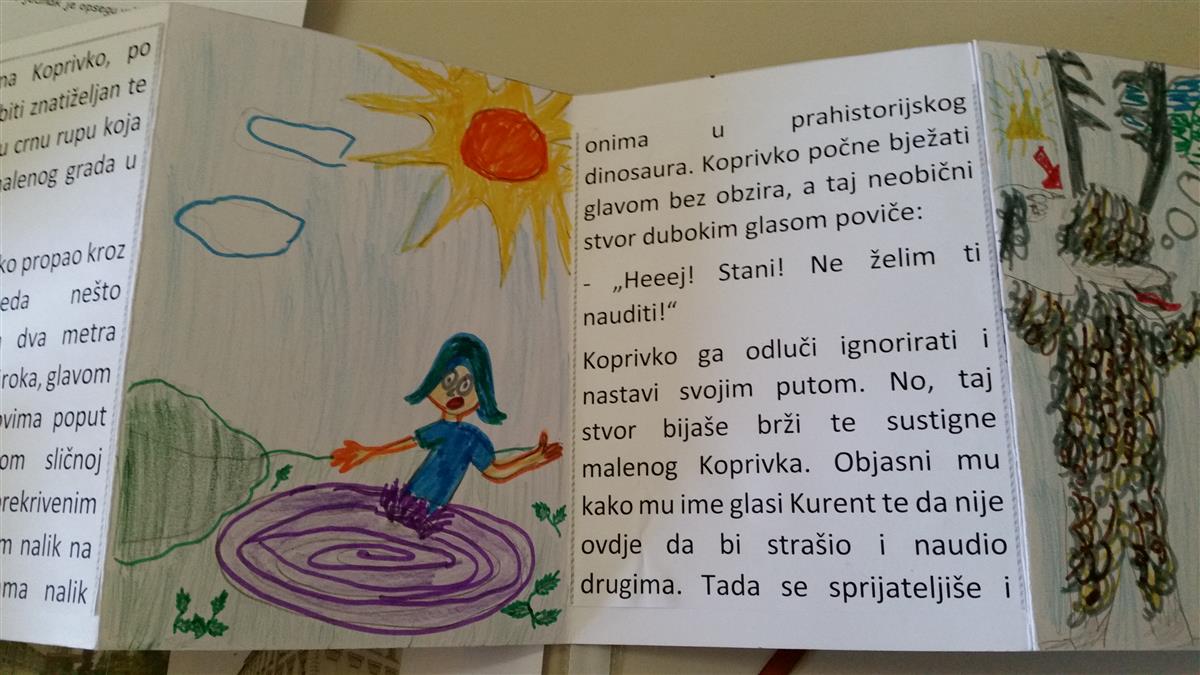 jednak je opsegu
na Koprivko, po
biti znatiželjan te
u crnu rupu koja
malenog grada u
ko propao kroz
eda nešto
dva metra
iroka, glavom
ovima poput
om sličnoj
rekrivenim
m nalik na
ama nalik
onima u prahistorijskog
dinosaura. Koprivko počne bježati
glavom bez obzira, a taj neobični
stvor dubokim glasom poviče:
- „Heeej! Stani! Ne želim ti
nauditi!“
Koprivko ga odluči ignorirati i
nastavi svojim putom. No, taj
stvor bijaše brži te sustigne
malenog Koprivka. Objasni mu
kako mu ime glasi Kurent te da nije
ovdje da bi strašio i naudio
drugima. Tada se sprijateljiše i